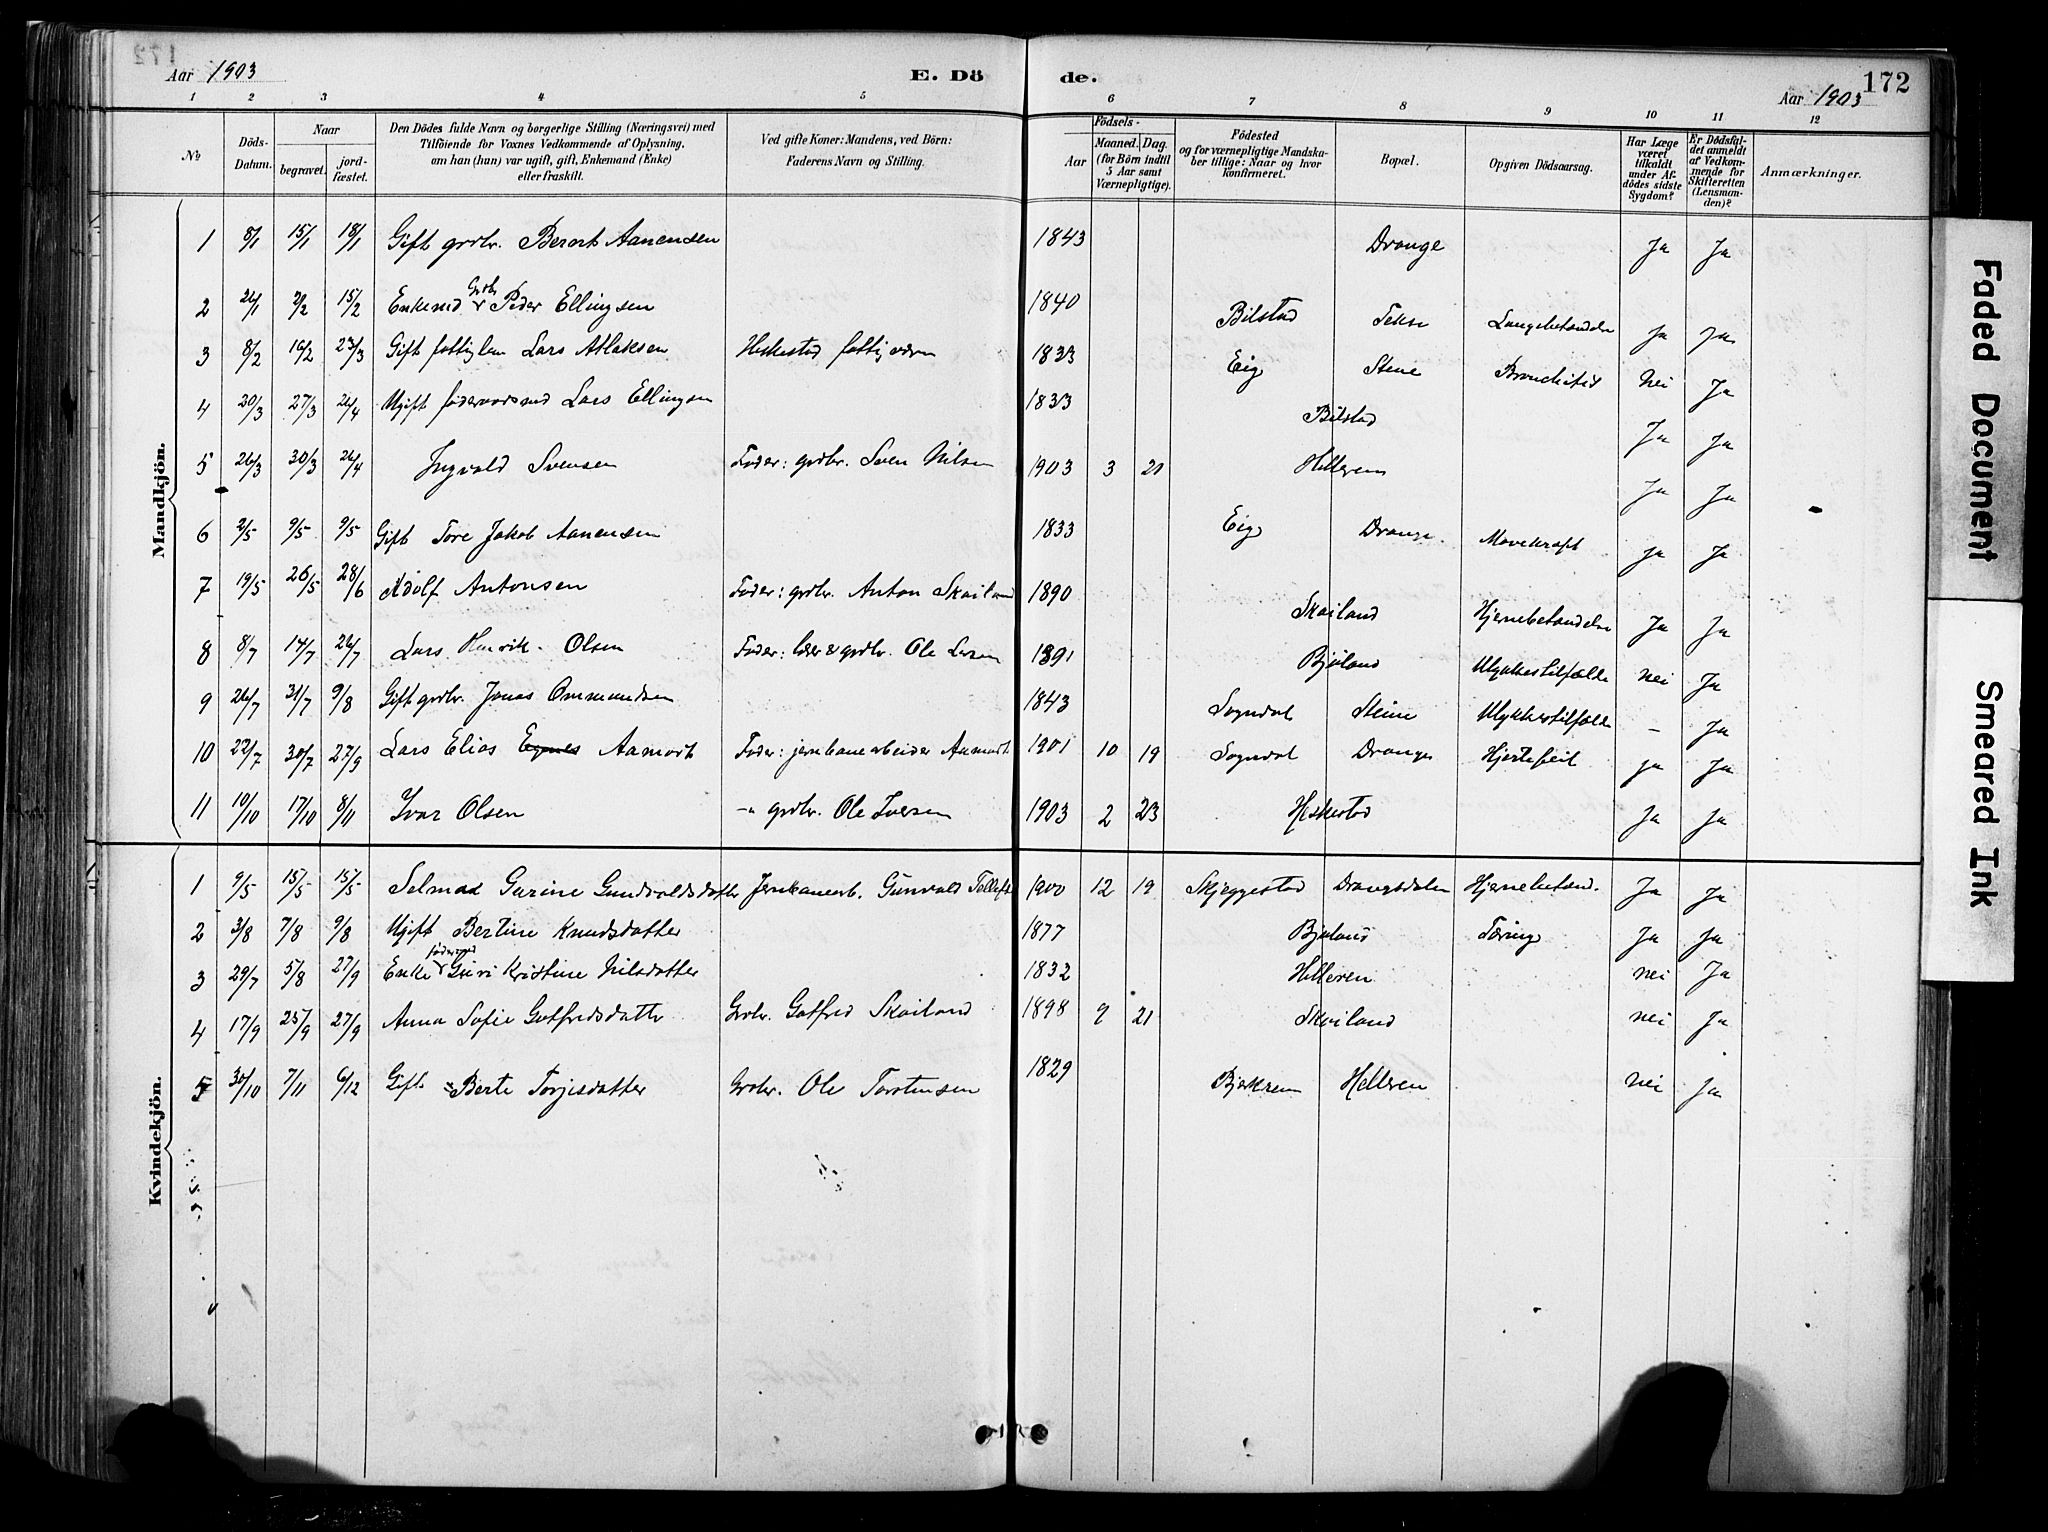 Aar 1903 E. Dö de. Aar 1903 172
1 2 3 4 5 6 7 8 9 10 11 12
No
Döds-Datum.
Naar
begravet.
jord-fæstet.
Den Dödes fulde Navn og borgerlige Stilling (Næringsvei) med
Tilföiende for Voxnes Vedkommende af Oplysning,
om han (hun) var ugift, gift, Enkemand (Enke)
eller fraskilt.
Ved gifte Koner: Mandens, ved Börn:
Faderens Navn og Stilling.
Födsels-
Aar
Maaned. Dag.
(for Börn indtil
5 Aar samt
Værnepligtige).
Födested
og for værnepligtige Mandska-
ber tillige: Naar og hvor
konfirmeret.
Bopæl.
Opgiven Dödsaarsag.
Har Læge
været
tilkaldt
under Af-
dödes sidste
Sygdom?
Er Dödsfal-
det anmeldt
af Vedkom-
mende for
Skifteretten
(Lensman-
den)?
Anmærkninger.
Mandkjön.
1 8/1 15/1 18/1 Gift grdbr. Berort Aanensen 1843 Drange Ja Ja
2 2/2 15/2 Enkemd Grdbr Peder Ellingsen 1840 Bilstad Tekse Lungebetændelse Ja Ja
3 8/2 16/2 23/3 Gift fattiglem Lars Atlaksen Heskestad fattigvæsen 1833 Eig Steine Bronchitis Nei Ja
4 20/3 27/3 26/4 Ugift föderaadsmd Lars Ellingsen 1833 Bilstad Ja Ja
5 26/3 30/3 26/4 Ingvald Svensen Fader: grdbr. Sven Nilsen 1903 3 21 Helleren Ja Ja
6 2/5 9/5 9/5 Gift Tore Jakob Aanensen 1833 Eig Drange Mavekræft Ja Ja
7 19/5 26/5 28/6 Adolf Antonsen Fader: grdbr. Anton Skailand 1890 Skailand Hjernebetændelse Ja Ja
8 8/7 14/7 26/7 Lars Henrik Olsen Fader: lærer & grdbr. Ole Larsen 1891 Bjuland Ulykkestilfælde nei Ja
9 26/7 31/7 9/8 Gift grdbr. Jonas Ommundsen 1843 Sogndal Steine Ulykkestilfælde - Ja
10 22/7 30/7 27/9 Lars Elias Egnes Aamodt Fader: jernbanearbeider Aamodt 1901 10 19 Sogndal Drange Hjertefeil ja Ja
11 10/10 17/10 8/11 Ivar Olsen -"- grdbr. Ole Iversen 1903 2 23 Heskestad Ja Ja
Kvindekjön.
1 9/5 15/5 15/5 Selma Gurine Gundvoldsdatter Jernbanearb. Gunvald Tellefs 1900 12 19 Skjeggestad Drangsdalen Hjernebetænd. Ja Ja
2 3/8 7/8 9/8 Ugift Bertine Knudsdatter 1877 Bjuland Tæring Ja Ja
3 29/7 5/8 27/9 Enke Guri Kristine Nilsdatter 1832 Helleren nei Ja
4 17/9 25/9 27/9 Anna Sofie Gotfredsdatter Grdbr. Gotfred Skailand 1898 9 21 Skailand nei Ja
5 30/10 7/11 6/12 Gift Berte Torjisdatter Grdbr. Ole Torstensen 1829 Bjerkrem Helleren nei Ja
Faded Document
Smeared Ink